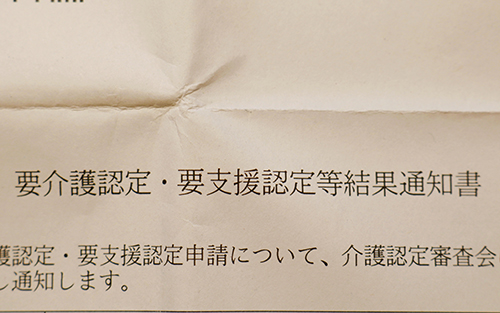 要介護認定・要支援認定等結果通知書
護認定・要支援認定申請について、介護認定審査会
し通知します。